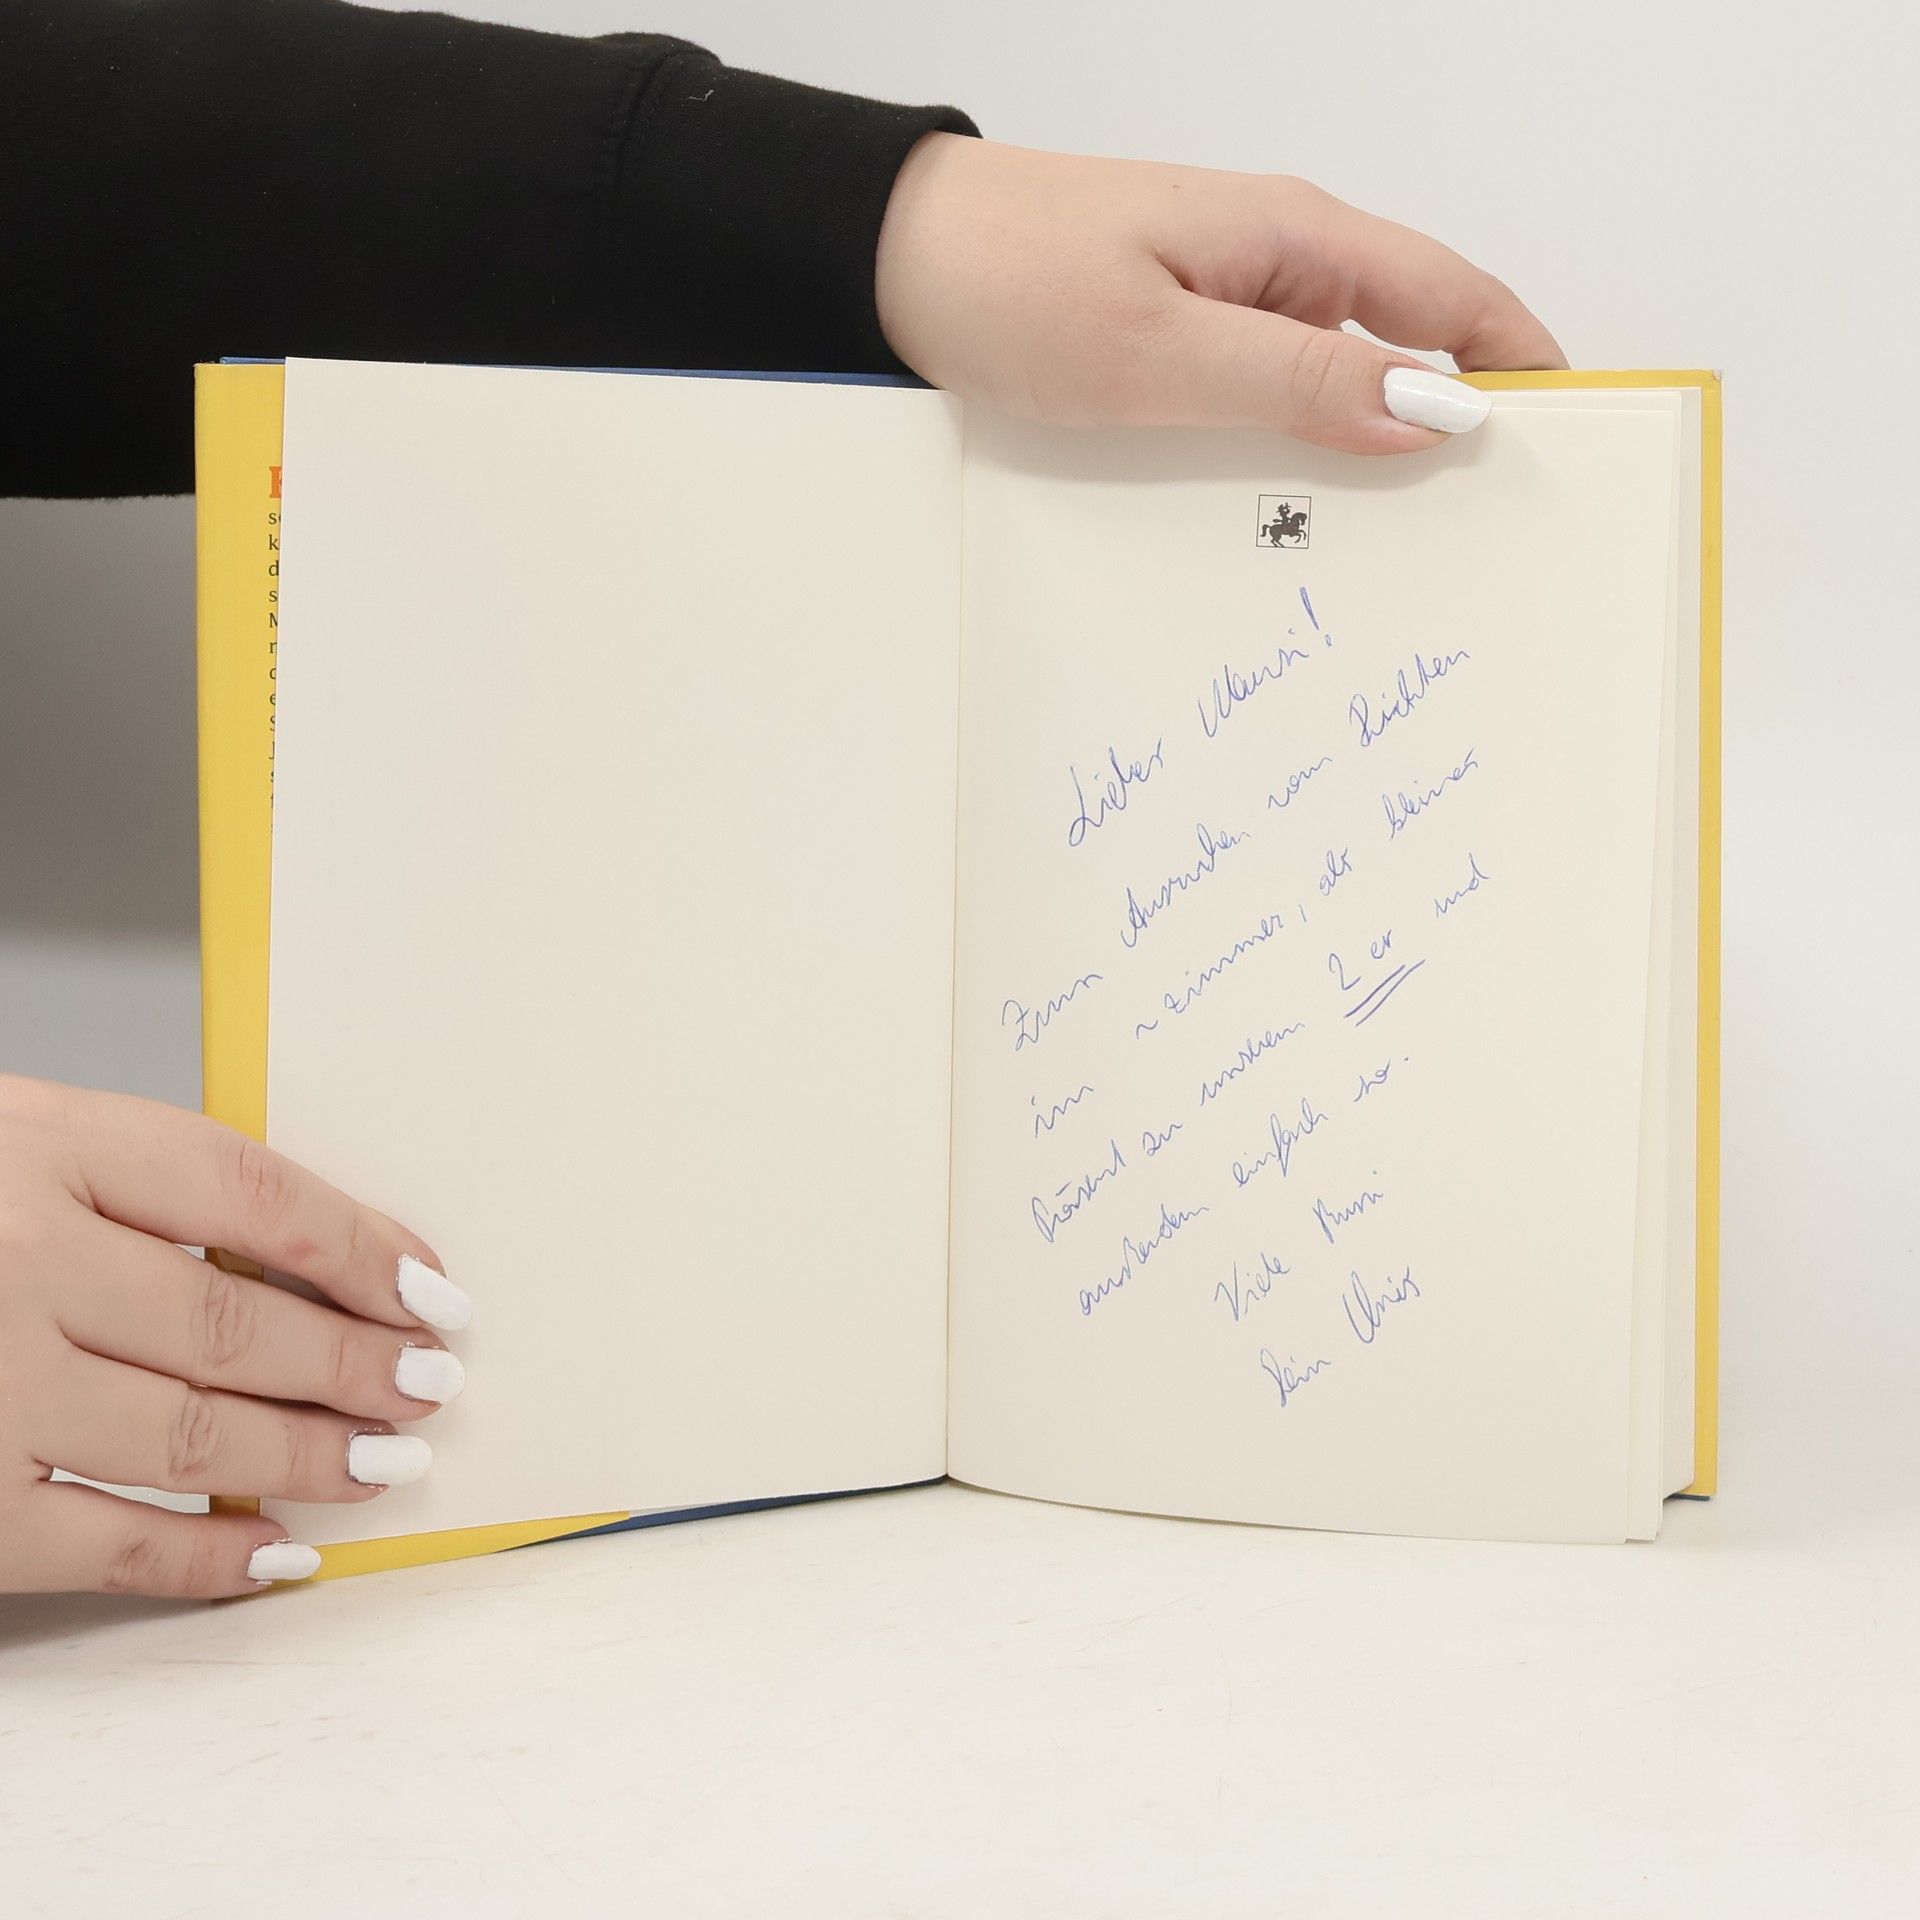 Lieber Mausi!
Zum Ausruhen vom Dichten
im ~ zimmer, als kleines
Präsent zu unserem 2er und
außerdem einfach so.
Viele Bussi
Dein
s
k
d
s
M
r
e
S
J